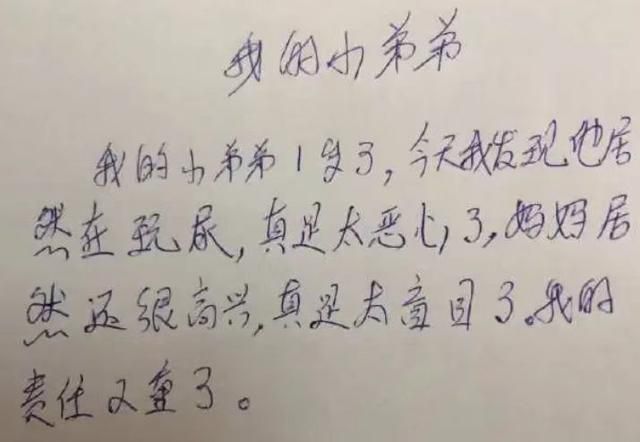 我的小弟弟
我的小弟弟1岁了,今天我发现他居
然在玩尿,真是太恶心了,妈妈居
然还很高兴,真是太盲目了。我的
责任又重了。